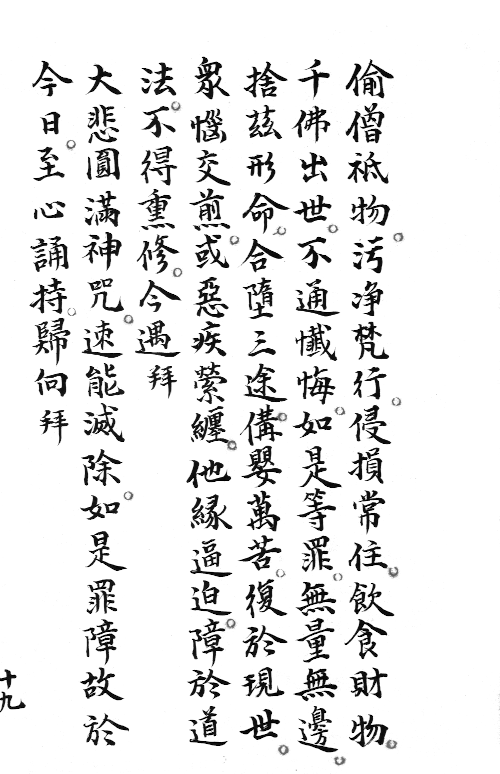 偷僧祇物。污净梵行。侵損常住。飲食財物。
千佛出世。不通懺悔。如是等罪。無量無邊。
捨玆形命。合墮三途。備嬰萬苦。復於現世。
衆惱交煎。或惡疾縈纏。他緣逼迫。障於道
法。不得熏修。今遇拜
大悲圓滿神咒。速能滅除。如是罪障故於
今日。至心誦持。歸向拜
十九